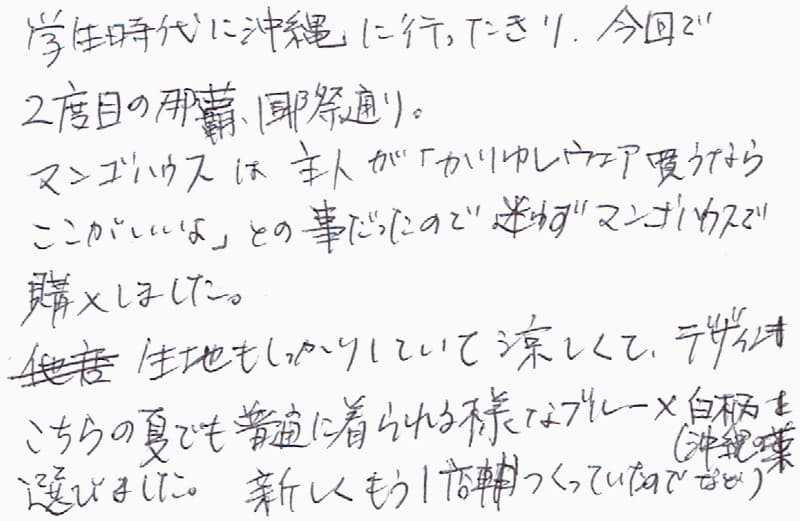 学生時代に沖縄に行ったきり、今回で
2度目の那覇、国際通り。
マンゴハウスは主人が「かりゆしウェア買うなら
ここがいいよ」との事だったので迷わずマンゴハウスで
購入しました。
生地もしっかりしていて涼しくて、デザインも
こちらの夏でも普通に着られる様なブルー×白柄を
(沖縄の葉
選びました。新しくもう1店舗つくっていたので など)